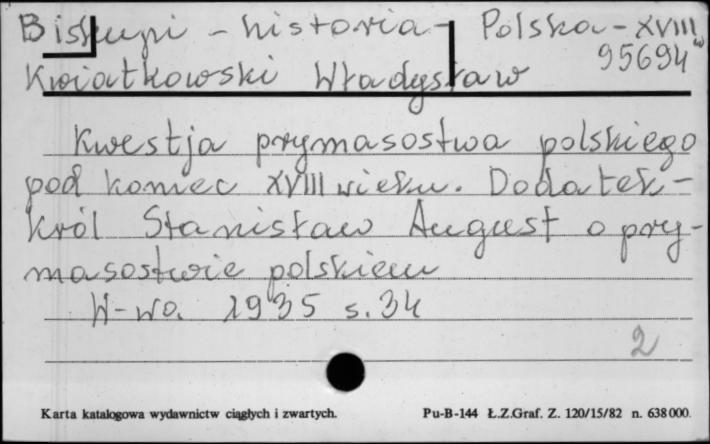 Biskupi - historia - Polska - XVIII w
95694
Kwiatkowski Władysław
Kwestja prymasostwa polskiego
pod koniec XVIII wieku. Dodatek -
król Stanisław August o pry-
masostwie polskiem
W-wa. 1935 s. 34
2
Karta katalogowa wydawnictw ciągłych i zwartych. Pu-B-144 Ł.Z.Graf. Z. 120/15/82 n. 638000.